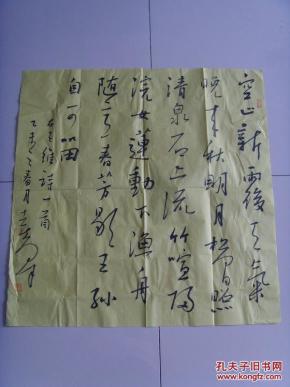 空山新雨後天氣
晚来秋明月松間照
清泉石上流竹喧歸
浣女蓮動下漁舟
随意春芳歇王孫
自可留
王維詩一首
乙未之春月
孔夫子旧书网